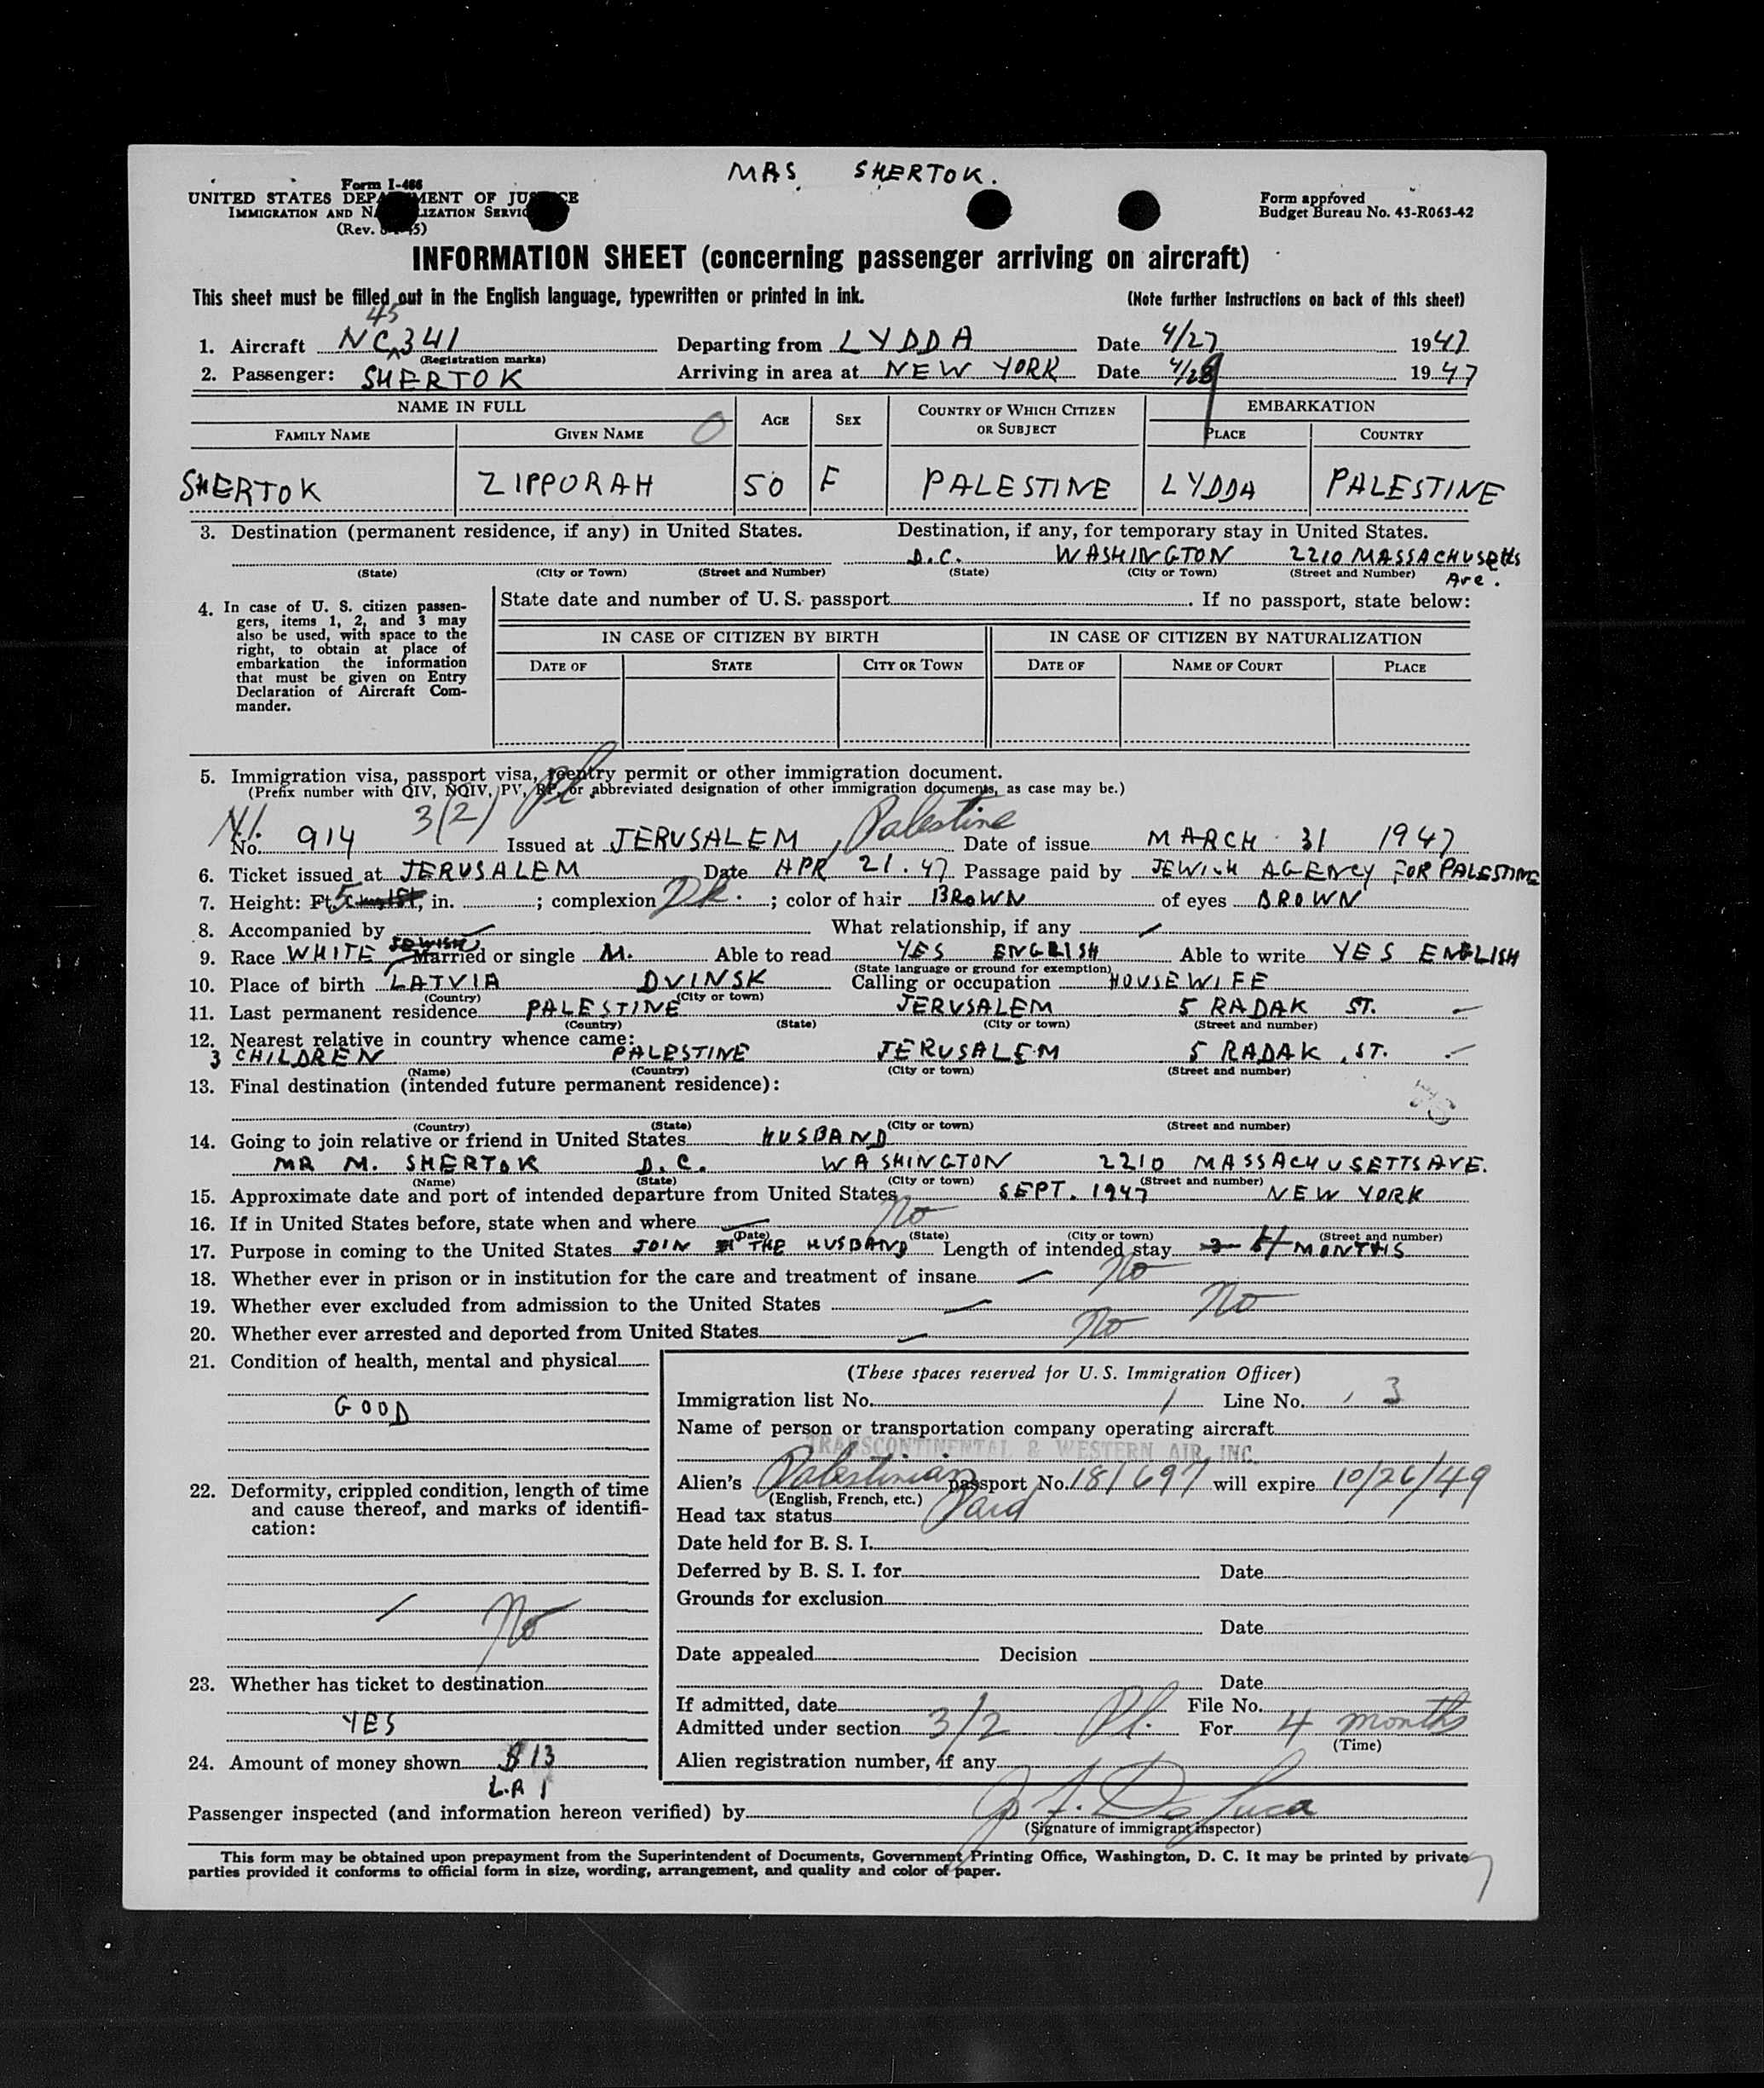 MRS SHERTOK.
Form I-466
UNITED STATES DEPARTMENT OF JUSTICE
IMMIGRATION AND NATURALIZATION SERVICE
(Rev. 5)
Form approved
Budget Bureau No. 43-R063-42
INFORMATION SHEET (concerning passenger arriving on aircraft)
This sheet must be filled out in the English language, typewritten or printed in ink. (Note further instructions on back of this sheet)
45
1. Aircraft NC 341 Departing from LYDDA Date 4/27 1947
(Registration marks)
2. Passenger: SHERTOK Arriving in area at NEW YORK Date 4/28 1947
NAME IN FULL AGE SEX COUNTRY OF WHICH CITIZEN OR SUBJECT EMBARKATION
FAMILY NAME GIVEN NAME PLACE COUNTRY
SHERTOK ZIPPORAH 50 F PALESTINE LYDDA PALESTINE
3. Destination (permanent residence, if any) in United States. Destination, if any, for temporary stay in United States.
D.C. WASHINGTON 2210 MASSACHUSetts Are.
(State) (City or Town) (Street and Number) (State) (City or Town) (Street and Number)
4. In case of U. S. citizen passen-
gers, items 1, 2, and 3 may
also be used, with space to the
right, to obtain at place of
embarkation the information
that must be given on Entry
Declaration of Aircraft Com-
mander.
State date and number of U. S. passport. If no passport, state below:
IN CASE OF CITIZEN BY BIRTH IN CASE OF CITIZEN BY NATURALIZATION
DATE OF STATE CITY OR TOWN DATE OF NAME OF COURT PLACE
5. Immigration visa, passport visa, reentry permit or other immigration document.
(Prefix number with QIV, NQIV, PV, RP, or abbreviated designation of other immigration documents, as case may be.)
3(2) Pl
No. 914 Issued at JERUSALEM, Palestine Date of issue MARCH 31 1947
6. Ticket issued at JERUSALEM Date APR 21. 47 Passage paid by JEWISH AGENCY FOR PALESTINE
7. Height: Ft. 5, in. ; complexion Dk. ; color of hair BROWN of eyes BROWN
8. Accompanied by What relationship, if any
9. Race WHITE JEWISH Married or single M. Able to read YES ENGLISH Able to write YES ENGLISH
(State language or ground for exemption)
10. Place of birth LATVIA DVINSK Calling or occupation HOUSEWIFE
(Country) (City or town)
11. Last permanent residence PALESTINE JERUSALEM 5 RADAK ST.
(Country) (State) (City or town) (Street and number)
12. Nearest relative in country whence came:
3 CHILDREN PALESTINE JERUSALEM 5 RADAK ST.
(Name) (Country) (City or town) (Street and number)
13. Final destination (intended future permanent residence):
(Country) (State) (City or town) (Street and number)
14. Going to join relative or friend in United States HUSBAND
MR M. SHERTOK D.C. WASHINGTON 2210 MASSACHUSETTS AVE.
(Name) (State) (City or town) (Street and number)
15. Approximate date and port of intended departure from United States SEPT. 1947 NEW YORK
16. If in United States before, state when and where No
(Date) (State) (City or town) (Street and number)
17. Purpose in coming to the United States JOIN THE HUSBAND Length of intended stay MONTHS
18. Whether ever in prison or in institution for the care and treatment of insane No
19. Whether ever excluded from admission to the United States No
20. Whether ever arrested and deported from United States No
21. Condition of health, mental and physical
GOOD
22. Deformity, crippled condition, length of time
and cause thereof, and marks of identifi-
cation:
No
23. Whether has ticket to destination
YES
24. Amount of money shown $ 13
L.P 1
(These spaces reserved for U. S. Immigration Officer)
Immigration list No. 1 Line No. 3
Name of person or transportation company operating aircraft
TRANSCONTINENTAL & WESTERN AIR, INC.
Alien's Palestinian passport No. 181697 will expire 10/26/49
(English, French, etc.)
Head tax status Paid
Date held for B. S. I.
Deferred by B. S. I. for Date
Grounds for exclusion
Date
Date appealed Decision
Date
If admitted, date File No.
Admitted under section 3/2 Pl. For 4 months
(Time)
Alien registration number, if any
Passenger inspected (and information hereon verified) by
(Signature of immigrant inspector)
This form may be obtained upon prepayment from the Superintendent of Documents, Government Printing Office, Washington, D. C. It may be printed by private
parties provided it conforms to official form in size, wording, arrangement, and quality and color of paper.